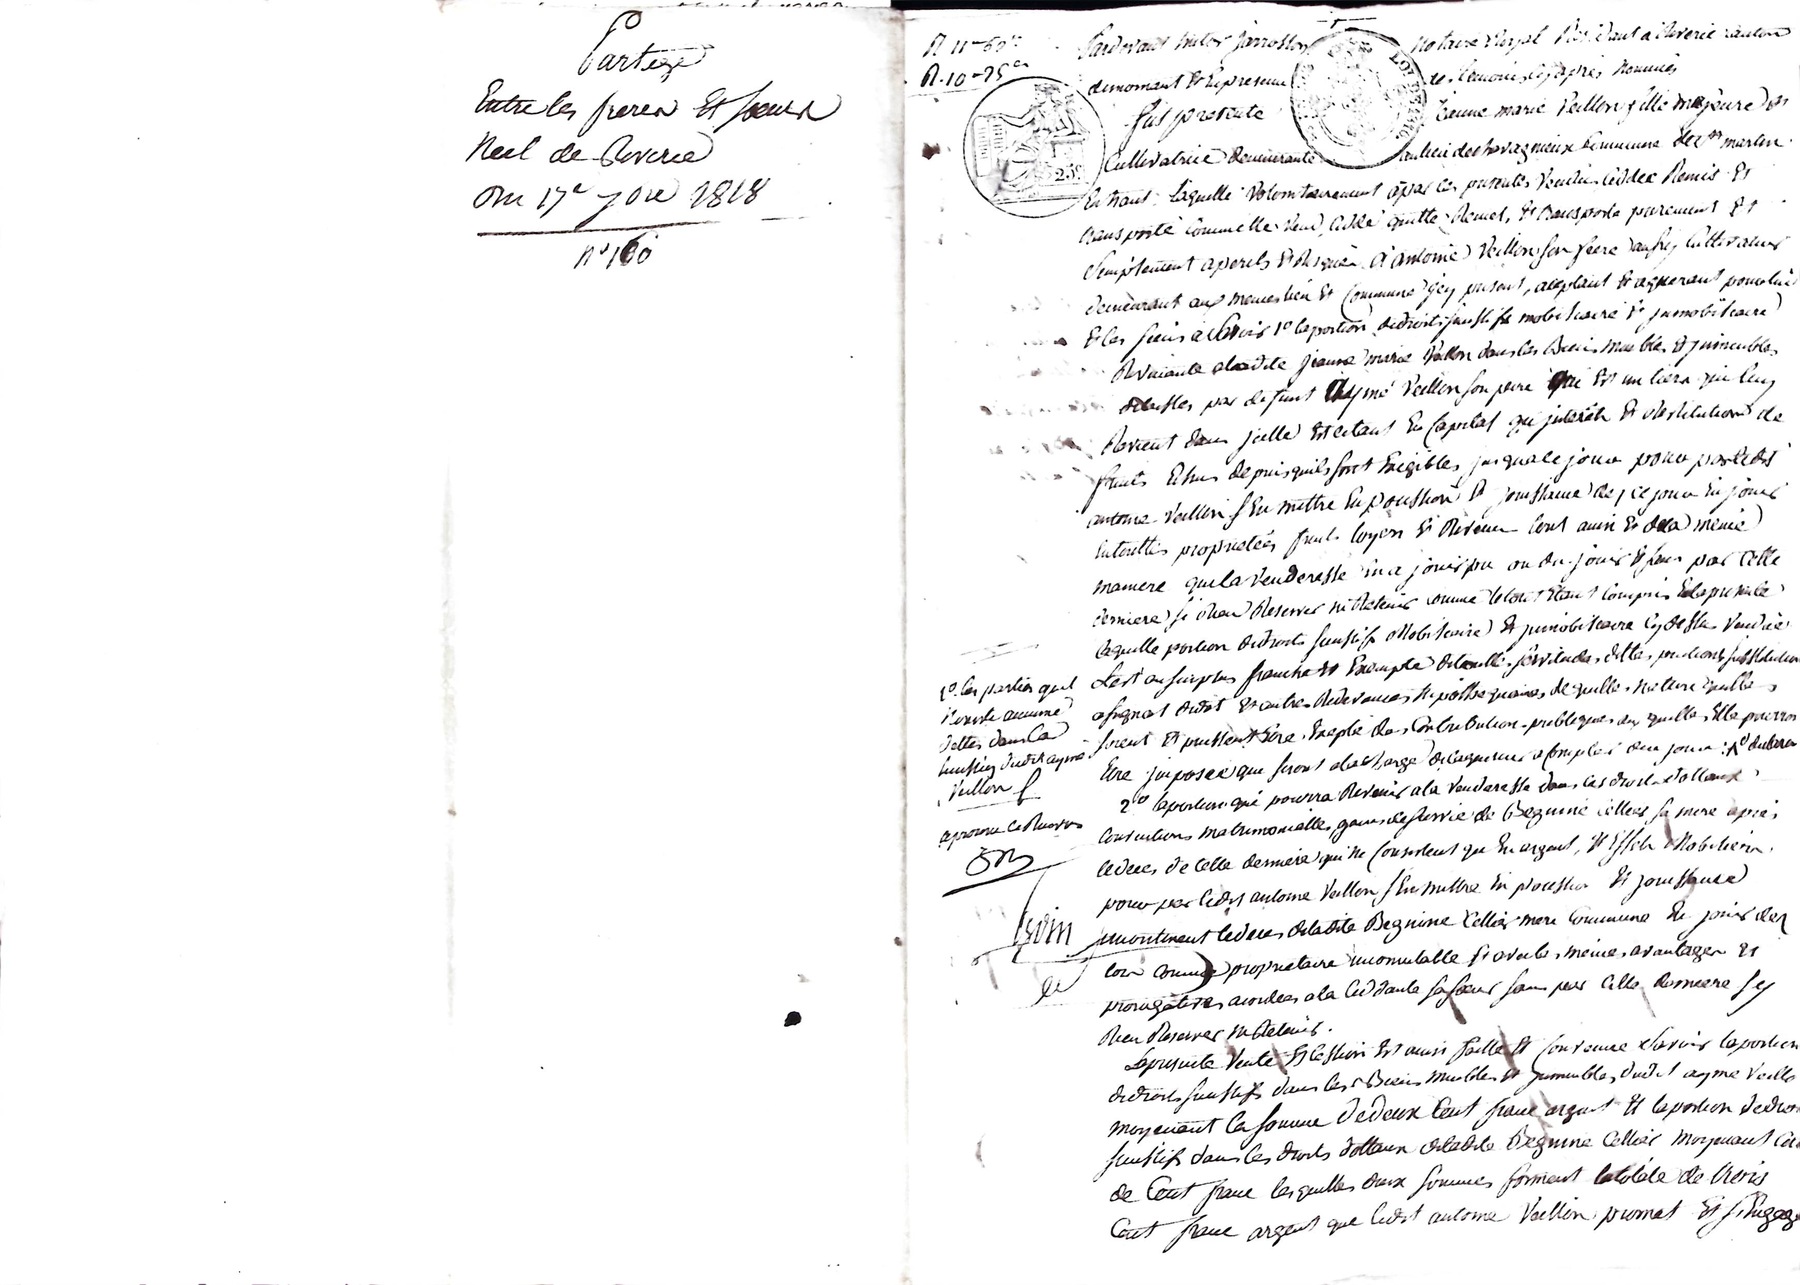 Partage
Entre les freres Et sœurs
Neel de Riverie
Du 17e 7bre 1818
n° 160
R 11 = 60c
R. 10 = 25c
Pardevant notaire Royal Résidant a Riverie canton
de mornant Et les témoins cy après Nommés
fut presente Jeanne marie Veillon fille majeure
Cultivatrice demeurante au lieu de chavagnieux Commune de St martin
En haut. Laquelle volontairement a par ces presentes vendu cédé Remis Et
transporté comme elle vend, cède quitte Remet, Et transporte purement Et
simplement a perils Et Risques A antoine Veillon son frere aussy Cultivateur
demeurant aux memes lieu Et Commune icy present, acceptant Et aquerant pour lui
Et les siens a Savoir 1° la portion de droits successifs mobiliaire Et immobiliaire
Revenante a ladite Jeanne marie Veillon dans les Biens meubles Et immeubles
délaissés par défunt Aymé Veillon son pere qui Est un tiers qui luy
Revient dans icelle Et ce tant En Capital qu'intérêts Et restitution de
fruits Echus depuis qu'ils sont Exigibles jusqu'a ce jour pour par ledit
antoine Veillon s'En mettre En possession Et jouissance dez ce jour En jouir
En toutes propriétés fruits loyers Et Revenus tout ainsi Et de la meme
maniere que la Venderesse En a joui pu ou du jouir Et sans par cette
derniere se Rien Reserver ni Retenir comme le tout Etant compris En la presente
laquelle portion de droits successifs Mobiliaire Et immobiliaire Cy dessus Vendue
Est au surplus franche Et Exempte de toutes servitudes, dettes, pensions substitution
soient Et puissent Etre, Excepté des Contributions publiques aux quelles Elle pourra
Etre imposée qui seront a la charge de l'aquereur a Compter de ce jour
2° la portion qui pourra Revenir a la Venderesse dans les droits dottaux
Conventions matrimonialles, gains de survie de Beguine Cellier sa mere après
le deces de cette derniere qui ne Consistent qu'En argent, Et Effets Mobiliers.
pour par ledit antoine Veillon s'En mettre En possession Et jouissance
incontinent le deces de ladite Beguine Cellier mere Commune En jouir dez
lors comme propriétaire incomutable Et avec les mêmes avantages Et
prerogatives accordées a la Cédante sa sœur sans par Cette derniere s'y
Rien Reserver ni Retenir.
La presente Vente Et Cession Est ainsi faitte Et Convenue a Savoir la portion
de droits successifs dans les Biens meubles Et immeubles dudit aymé Veillon
moyenant la somme de deux Cent franc argent Et la portion de droits
successifs dans les droits dottaux de ladite Beguine Cellier moyenant celle
de Cent franc lesquelles deux sommes forment la totale de trois
Cent franc argent que ledit antoine Veillon promet Et s'Engage
1° les parties quil
n'existe aucune
dettes dans la
succession dudit aymé
Veillon
aprouvé le Renvoy